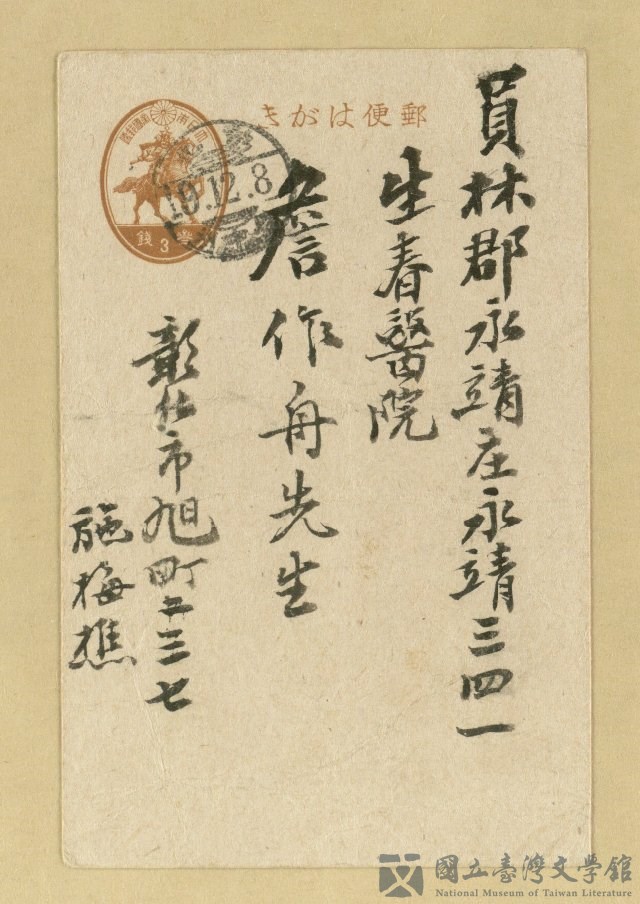 郵便はがき
員林郡永靖庄永靖三四一
生春醫院
詹作舟先生
彰化市旭町二三七
施梅樵
19.12.8
3
錢
國立臺灣文學館
National Museum of Taiwan Literature